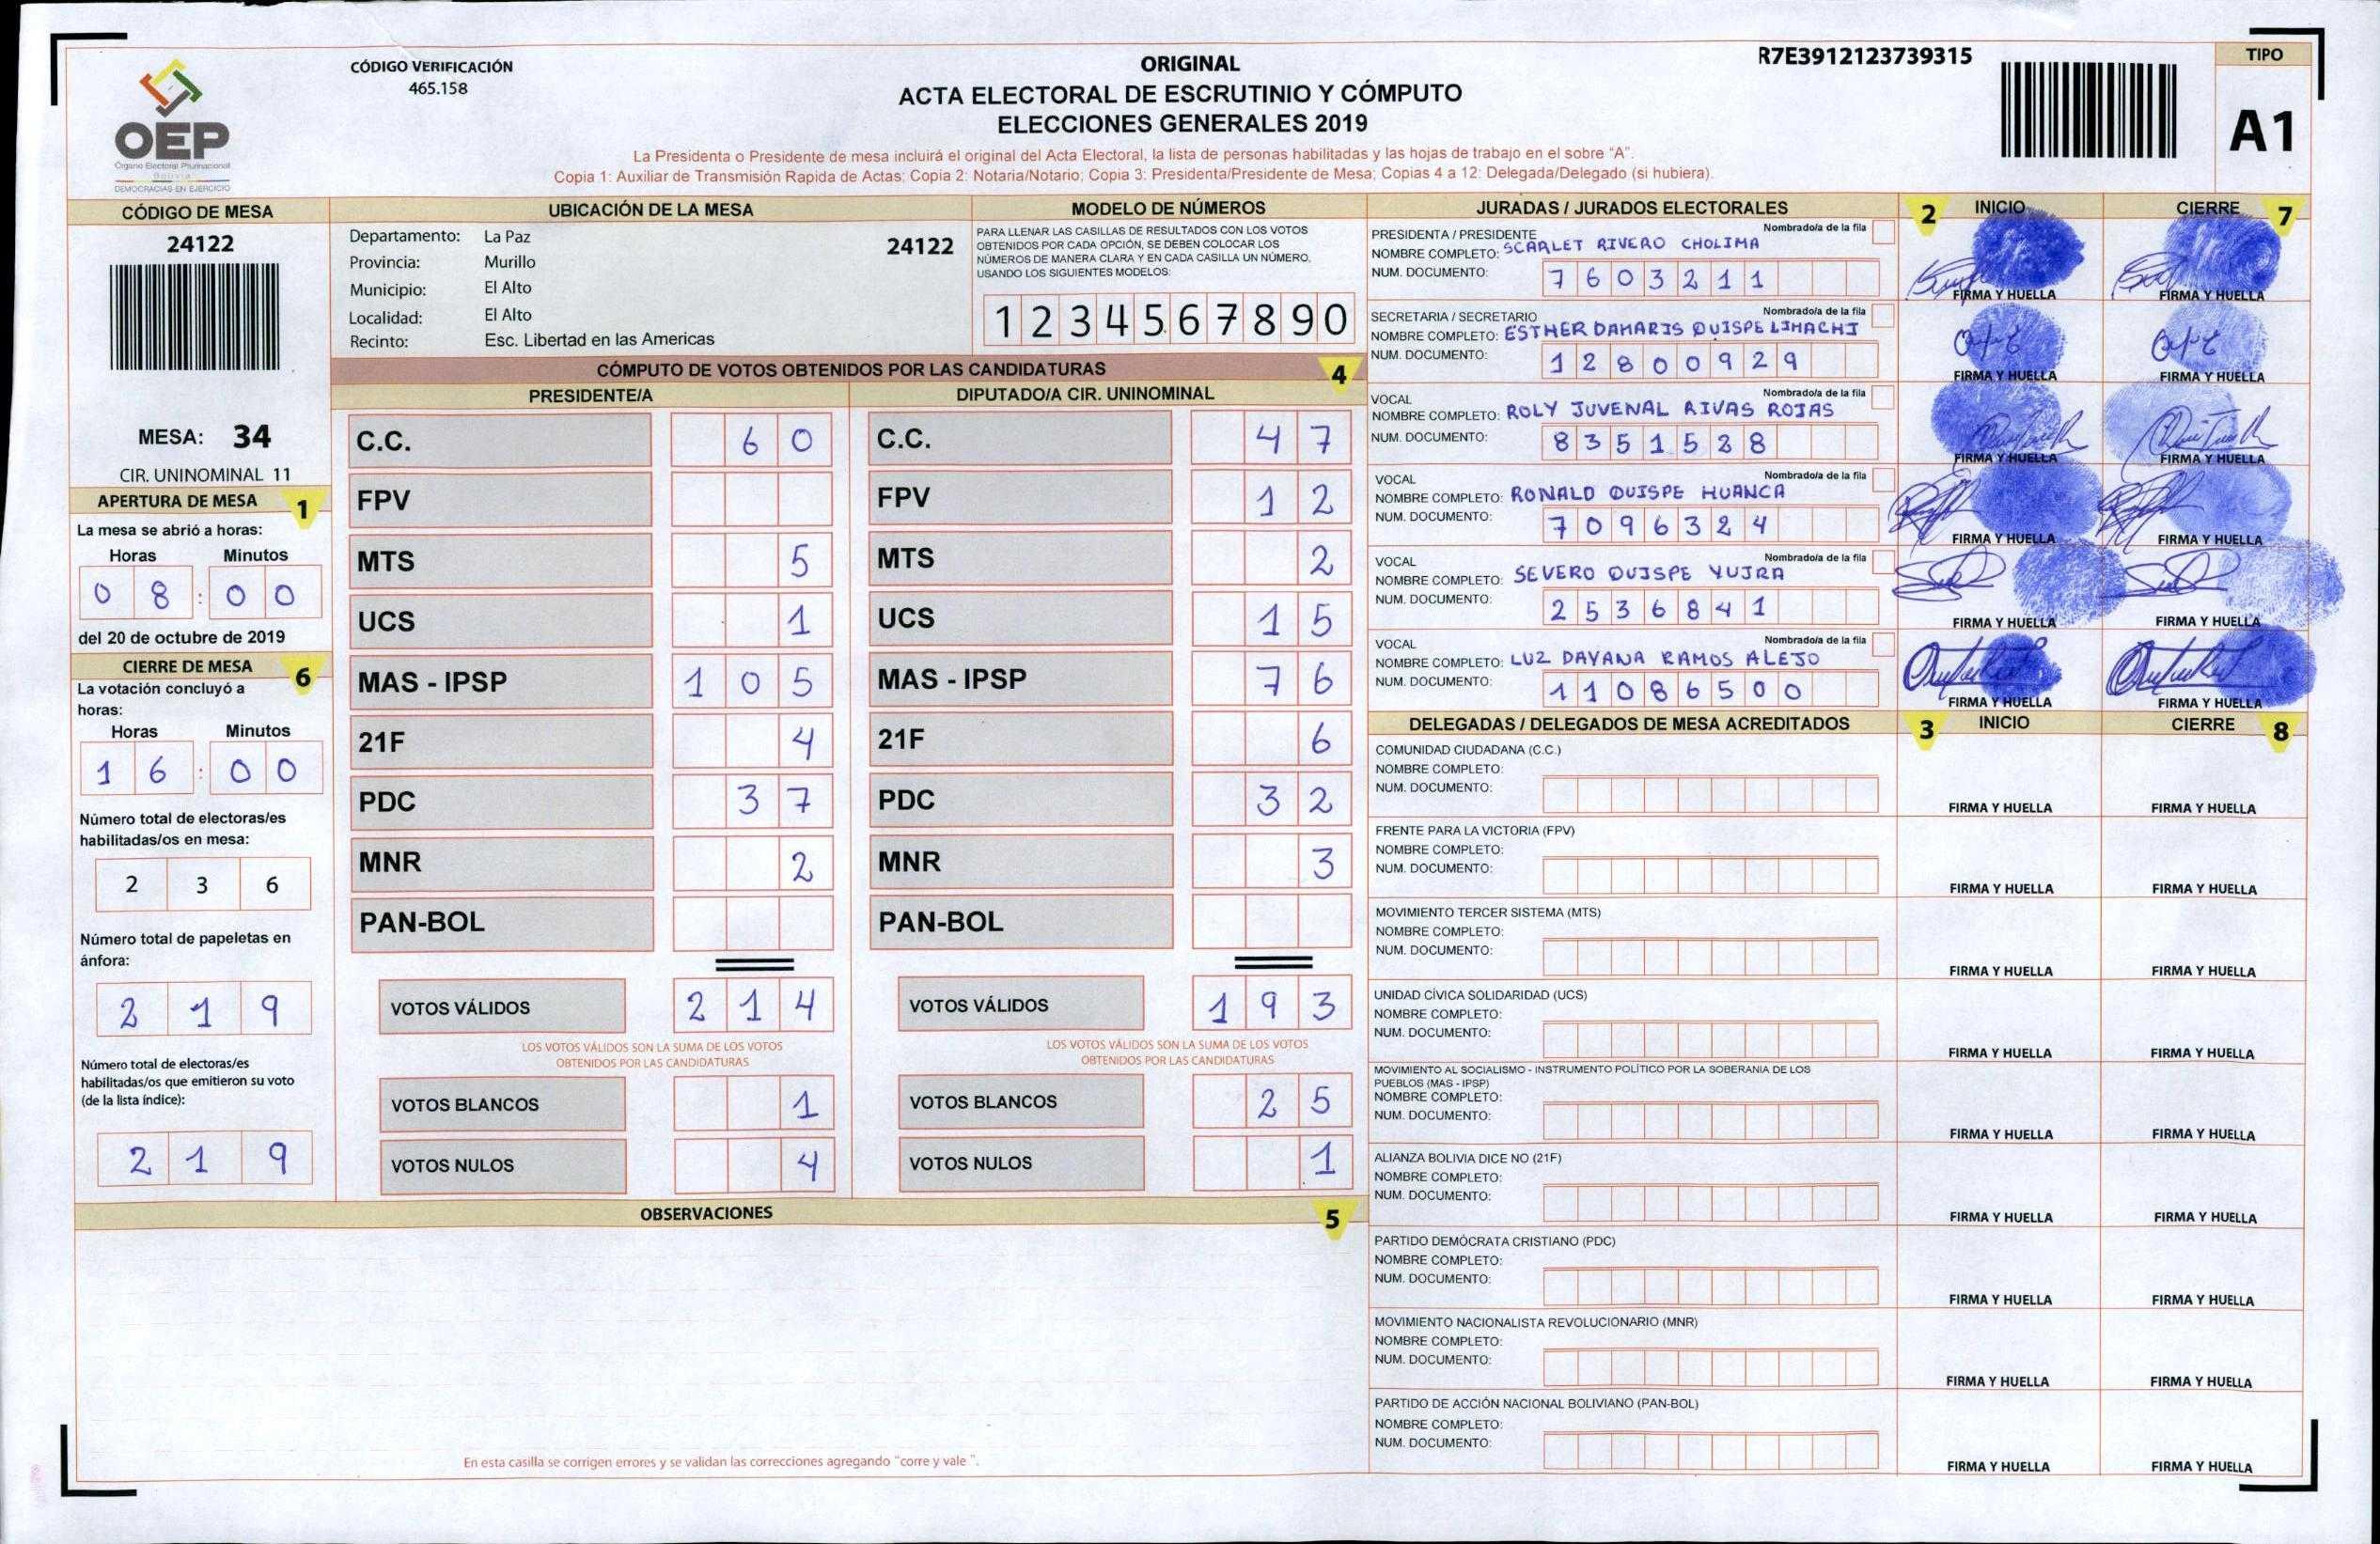 CÓDIGO VERIFICACIÓN
465.158
ORIGINAL
ACTA ELECTORAL DE ESCRUTINIO Y CÓMPUTO
ELECCIONES GENERALES 2019
La Presidenta o Presidente de mesa incluirá el original del Acta Electoral, la lista de personas habilitadas y las hojas de trabajo en el sobre “A”.
Copia 1: Auxiliar de Transmisión Rapida de Actas; Copia 2: Notaria/Notario; Copia 3: Presidenta/Presidente de Mesa; Copias 4 a 12: Delegada/Delegado (si hubiera).
R7E3912123739315
TIPO
A1
OEP
Órgano Electoral Plurinacional
Bolivia
DEMOCRACIAS EN EJERCICIO
CÓDIGO DE MESA
24122
MESA: 34
CIR. UNINOMINAL 11
APERTURA DE MESA 1
La mesa se abrió a horas:
Horas Minutos
0 8 : 0 0
del 20 de octubre de 2019
CIERRE DE MESA 6
La votación concluyó a
horas:
Horas Minutos
1 6 : 0 0
Número total de electoras/es
habilitadas/os en mesa:
2 3 6
Número total de papeletas en
ánfora:
2 1 9
Número total de electoras/es
habilitadas/os que emitieron su voto
(de la lista índice):
2 1 9
UBICACIÓN DE LA MESA
Departamento: La Paz 24122
Provincia: Murillo
Municipio: El Alto
Localidad: El Alto
Recinto: Esc. Libertad en las Americas
MODELO DE NÚMEROS
PARA LLENAR LAS CASILLAS DE RESULTADOS CON LOS VOTOS
OBTENIDOS POR CADA OPCIÓN, SE DEBEN COLOCAR LOS
NÚMEROS DE MANERA CLARA Y EN CADA CASILLA UN NÚMERO,
USANDO LOS SIGUIENTES MODELOS:
1 2 3 4 5 6 7 8 9 0
CÓMPUTO DE VOTOS OBTENIDOS POR LAS CANDIDATURAS 4
PRESIDENTE/A
C.C. 6 0
FPV
MTS 5
UCS 1
MAS - IPSP 1 0 5
21F 4
PDC 3 7
MNR 2
PAN-BOL
VOTOS VÁLIDOS 2 1 4
LOS VOTOS VÁLIDOS SON LA SUMA DE LOS VOTOS
OBTENIDOS POR LAS CANDIDATURAS
VOTOS BLANCOS 1
VOTOS NULOS 4
DIPUTADO/A CIR. UNINOMINAL
C.C. 4 7
FPV 1 2
MTS 2
UCS 1 5
MAS - IPSP 7 6
21F 6
PDC 3 2
MNR 3
PAN-BOL
VOTOS VÁLIDOS 1 9 3
LOS VOTOS VÁLIDOS SON LA SUMA DE LOS VOTOS
OBTENIDOS POR LAS CANDIDATURAS
VOTOS BLANCOS 2 5
VOTOS NULOS 1
OBSERVACIONES 5
En esta casilla se corrigen errores y se validan las correcciones agregando “corre y vale ”.
JURADAS / JURADOS ELECTORALES 2 INICIO CIERRE 7
PRESIDENTA / PRESIDENTE Nombrado/a de la fila
NOMBRE COMPLETO: SCARLET RIVERO CHOLIMA
NUM. DOCUMENTO: 7 6 0 3 2 1 1
FIRMA Y HUELLA FIRMA Y HUELLA
SECRETARIA / SECRETARIO Nombrado/a de la fila
NOMBRE COMPLETO: ESTHER DAMARIS QUISPE LIMACHI
NUM. DOCUMENTO: 1 2 8 0 0 9 2 9
FIRMA Y HUELLA FIRMA Y HUELLA
VOCAL Nombrado/a de la fila
NOMBRE COMPLETO: ROLY JUVENAL RIVAS ROJAS
NUM. DOCUMENTO: 8 3 5 1 5 2 8
FIRMA Y HUELLA FIRMA Y HUELLA
VOCAL Nombrado/a de la fila
NOMBRE COMPLETO: RONALD QUISPE HUANCA
NUM. DOCUMENTO: 7 0 9 6 3 2 4
FIRMA Y HUELLA FIRMA Y HUELLA
VOCAL Nombrado/a de la fila
NOMBRE COMPLETO: SEVERO QUISPE YUJRA
NUM. DOCUMENTO: 2 5 3 6 8 4 1
FIRMA Y HUELLA FIRMA Y HUELLA
VOCAL Nombrado/a de la fila
NOMBRE COMPLETO: LUZ DAYANA RAMOS ALEJO
NUM. DOCUMENTO: 1 1 0 8 6 5 0 0
FIRMA Y HUELLA FIRMA Y HUELLA
DELEGADAS / DELEGADOS DE MESA ACREDITADOS 3 INICIO CIERRE 8
COMUNIDAD CIUDADANA (C.C.)
NOMBRE COMPLETO:
NUM. DOCUMENTO:
FIRMA Y HUELLA FIRMA Y HUELLA
FRENTE PARA LA VICTORIA (FPV)
NOMBRE COMPLETO:
NUM. DOCUMENTO:
FIRMA Y HUELLA FIRMA Y HUELLA
MOVIMIENTO TERCER SISTEMA (MTS)
NOMBRE COMPLETO:
NUM. DOCUMENTO:
FIRMA Y HUELLA FIRMA Y HUELLA
UNIDAD CÍVICA SOLIDARIDAD (UCS)
NOMBRE COMPLETO:
NUM. DOCUMENTO:
FIRMA Y HUELLA FIRMA Y HUELLA
MOVIMIENTO AL SOCIALISMO - INSTRUMENTO POLÍTICO POR LA SOBERANIA DE LOS
PUEBLOS (MAS - IPSP)
NOMBRE COMPLETO:
NUM. DOCUMENTO:
FIRMA Y HUELLA FIRMA Y HUELLA
ALIANZA BOLIVIA DICE NO (21F)
NOMBRE COMPLETO:
NUM. DOCUMENTO:
FIRMA Y HUELLA FIRMA Y HUELLA
PARTIDO DEMÓCRATA CRISTIANO (PDC)
NOMBRE COMPLETO:
NUM. DOCUMENTO:
FIRMA Y HUELLA FIRMA Y HUELLA
MOVIMIENTO NACIONALISTA REVOLUCIONARIO (MNR)
NOMBRE COMPLETO:
NUM. DOCUMENTO:
FIRMA Y HUELLA FIRMA Y HUELLA
PARTIDO DE ACCIÓN NACIONAL BOLIVIANO (PAN-BOL)
NOMBRE COMPLETO:
NUM. DOCUMENTO:
FIRMA Y HUELLA FIRMA Y HUELLA